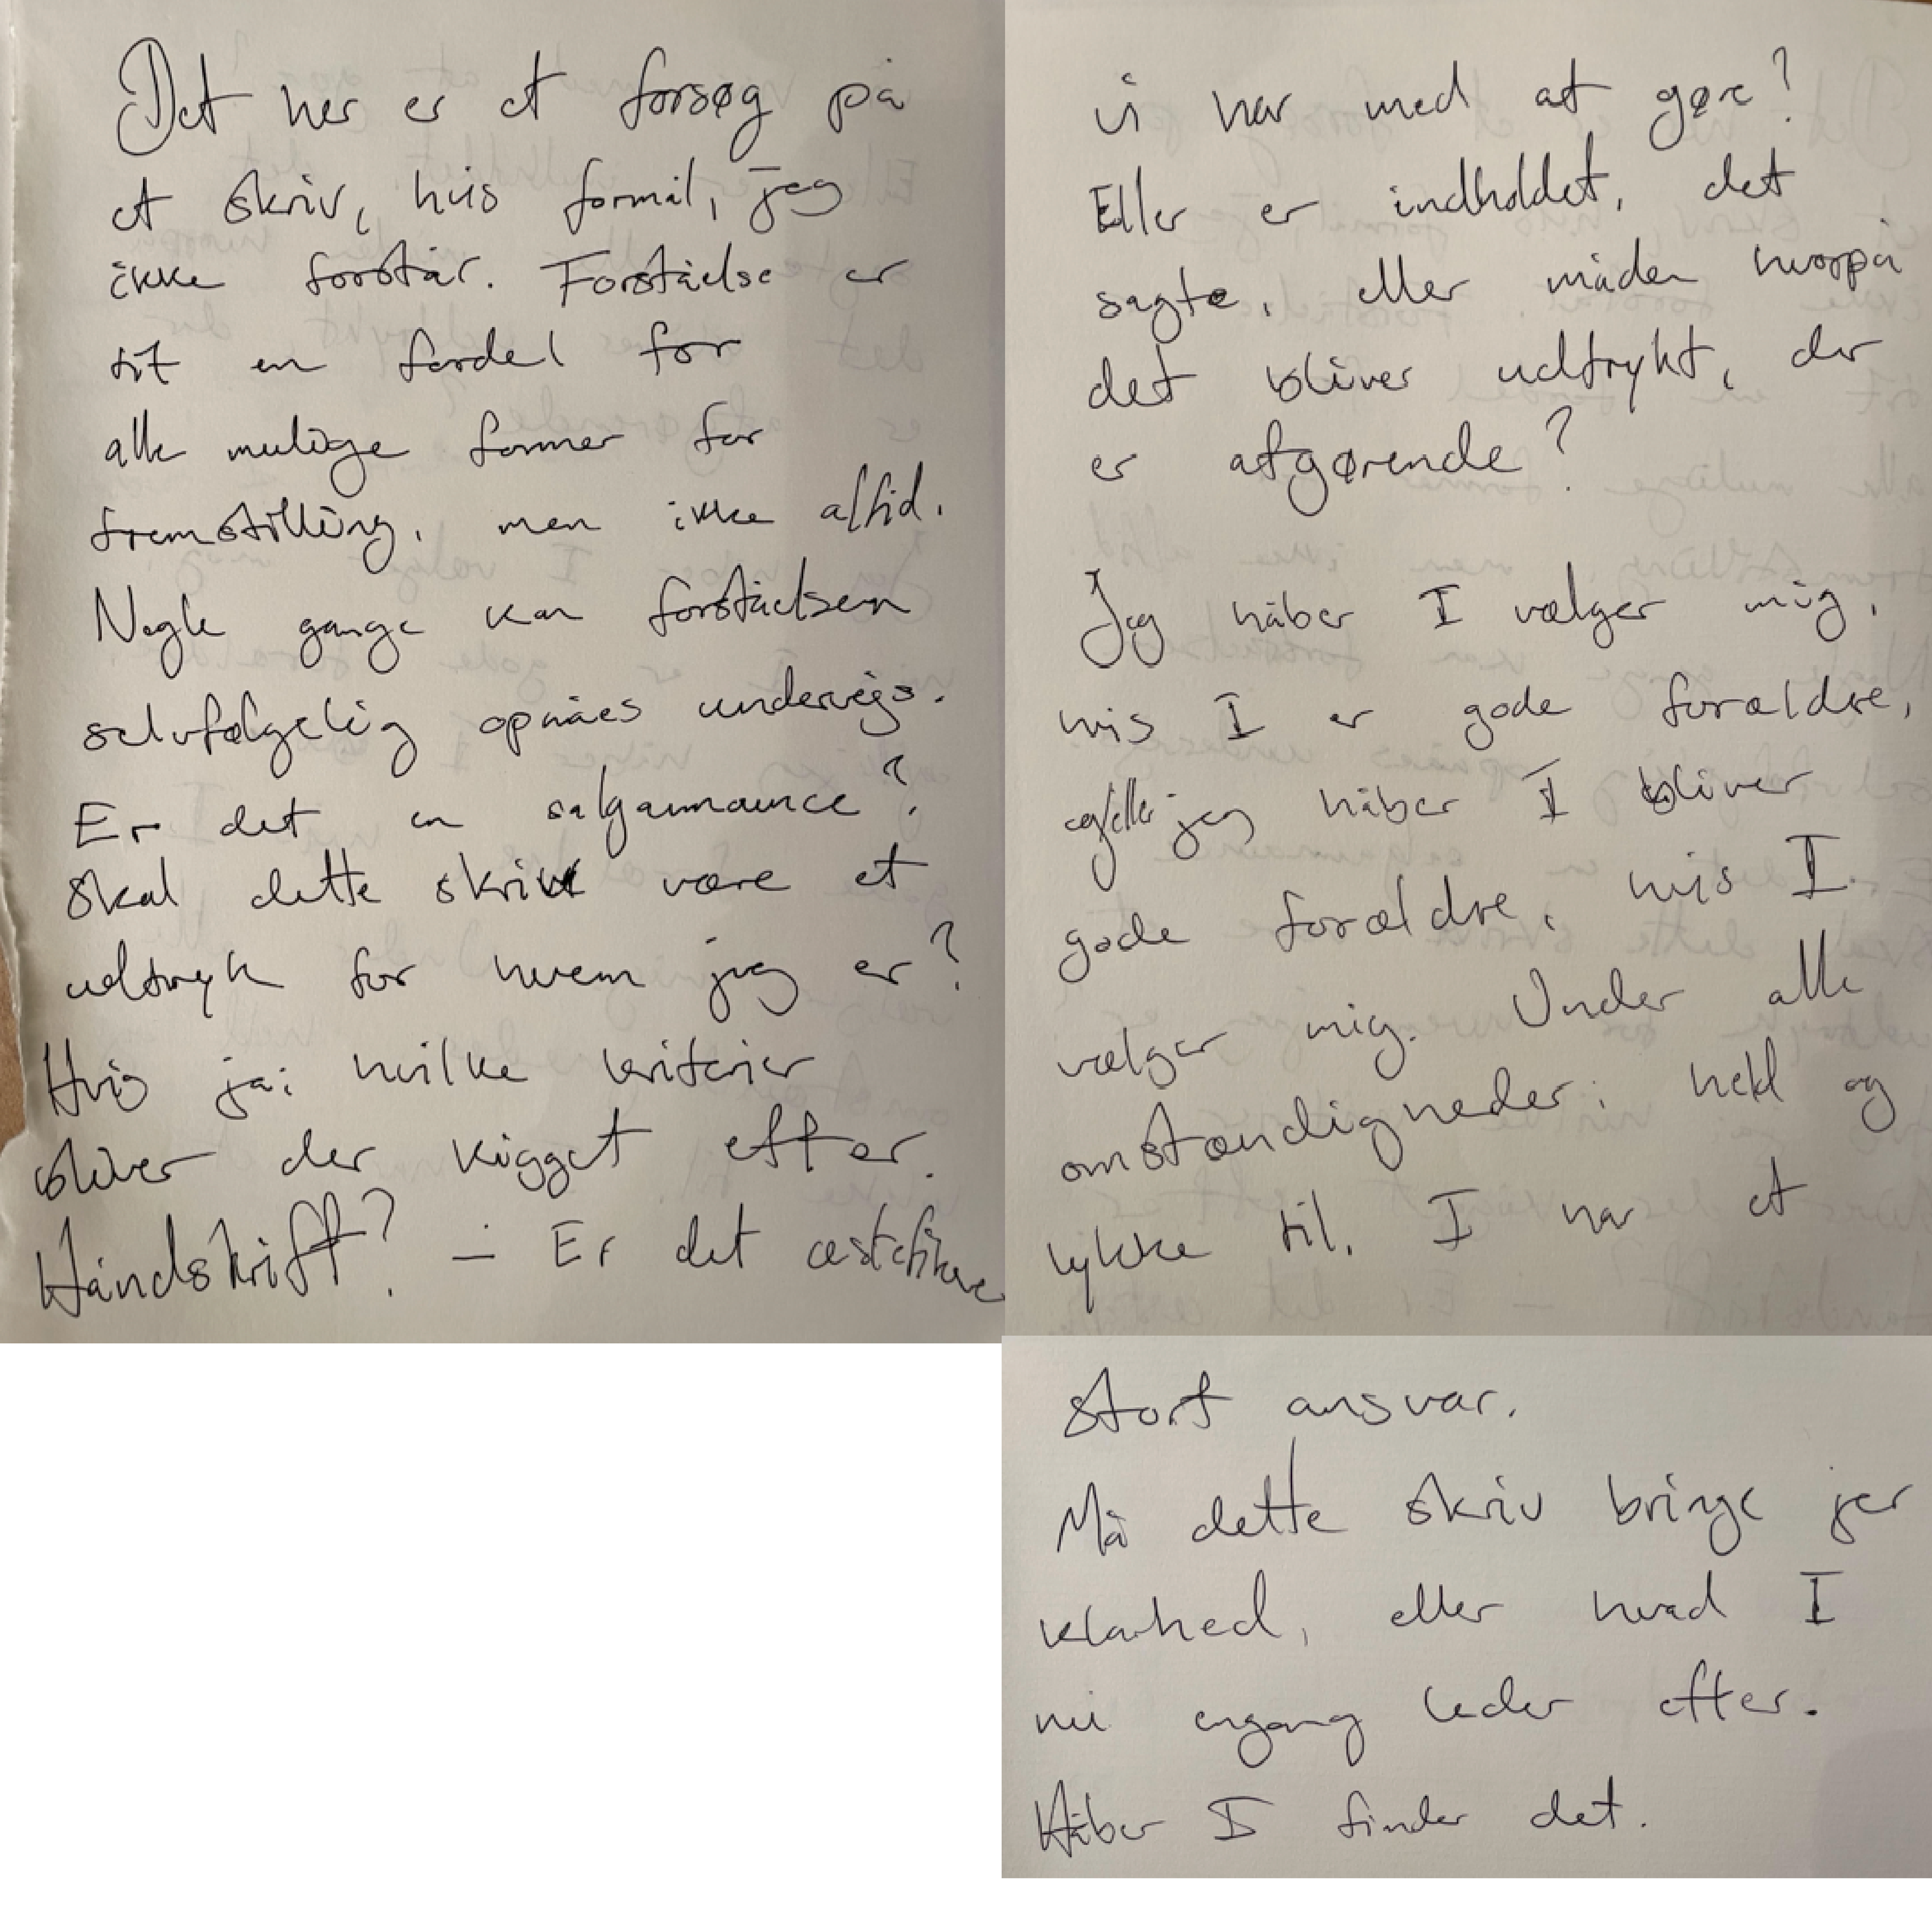 Det her er et forsøg på
et skriv, hvis formål, jeg
ikke forstår. Forståelse er
tit en fordel for
alle mulige former for
fremstilling, men ikke altid.
Nogle gange kan forståelsen
selvfølgelig opnåes undervejs.
Er det en salgannounce?
Skal dette skriv være et
udtryk for hvem jeg er?
Hvis ja; hvilke kriterier
bliver der kigget efter.
Håndskrift? – Er det æstetikken
vi har med at gøre?
Eller er indholdet, det
sagte, eller måden hvorpå
det bliver udtrykt, der
er afgørende?
Jeg håber I vælger mig,
hvis I er gode forældre,
og/eller jeg håber I bliver
gode forældre, hvis I
vælger mig. Under alle
omstændigheder; held og
lykke til. I har et
stort ansvar.
Må dette skriv bringe jer
klarhed, eller hvad I
nu engang leder efter.
Håber I finder det.